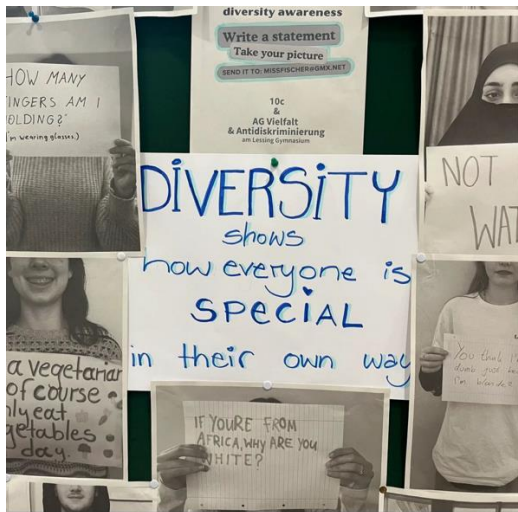 diversity awareness
Write a statement
Take your picture
SEND IT TO: MISSFISCHER@GMX.NET
10c
&
AG Vielfalt
& Antidiskriminierung
am Lessing Gymnasium
HOW MANY
INGERS AM I
OLDING?'
(I'm wearing glasses.)
NOT
WAT
DIVERSITY
shows
how everyone is
SPECIAL
in their own way
a vegetarian
of course
nly eat
getables
day.
You think I'm
dumb just
I'm blonde?
IF YOURE FROM
AFRICA, WHY ARE YOU
WHITE?